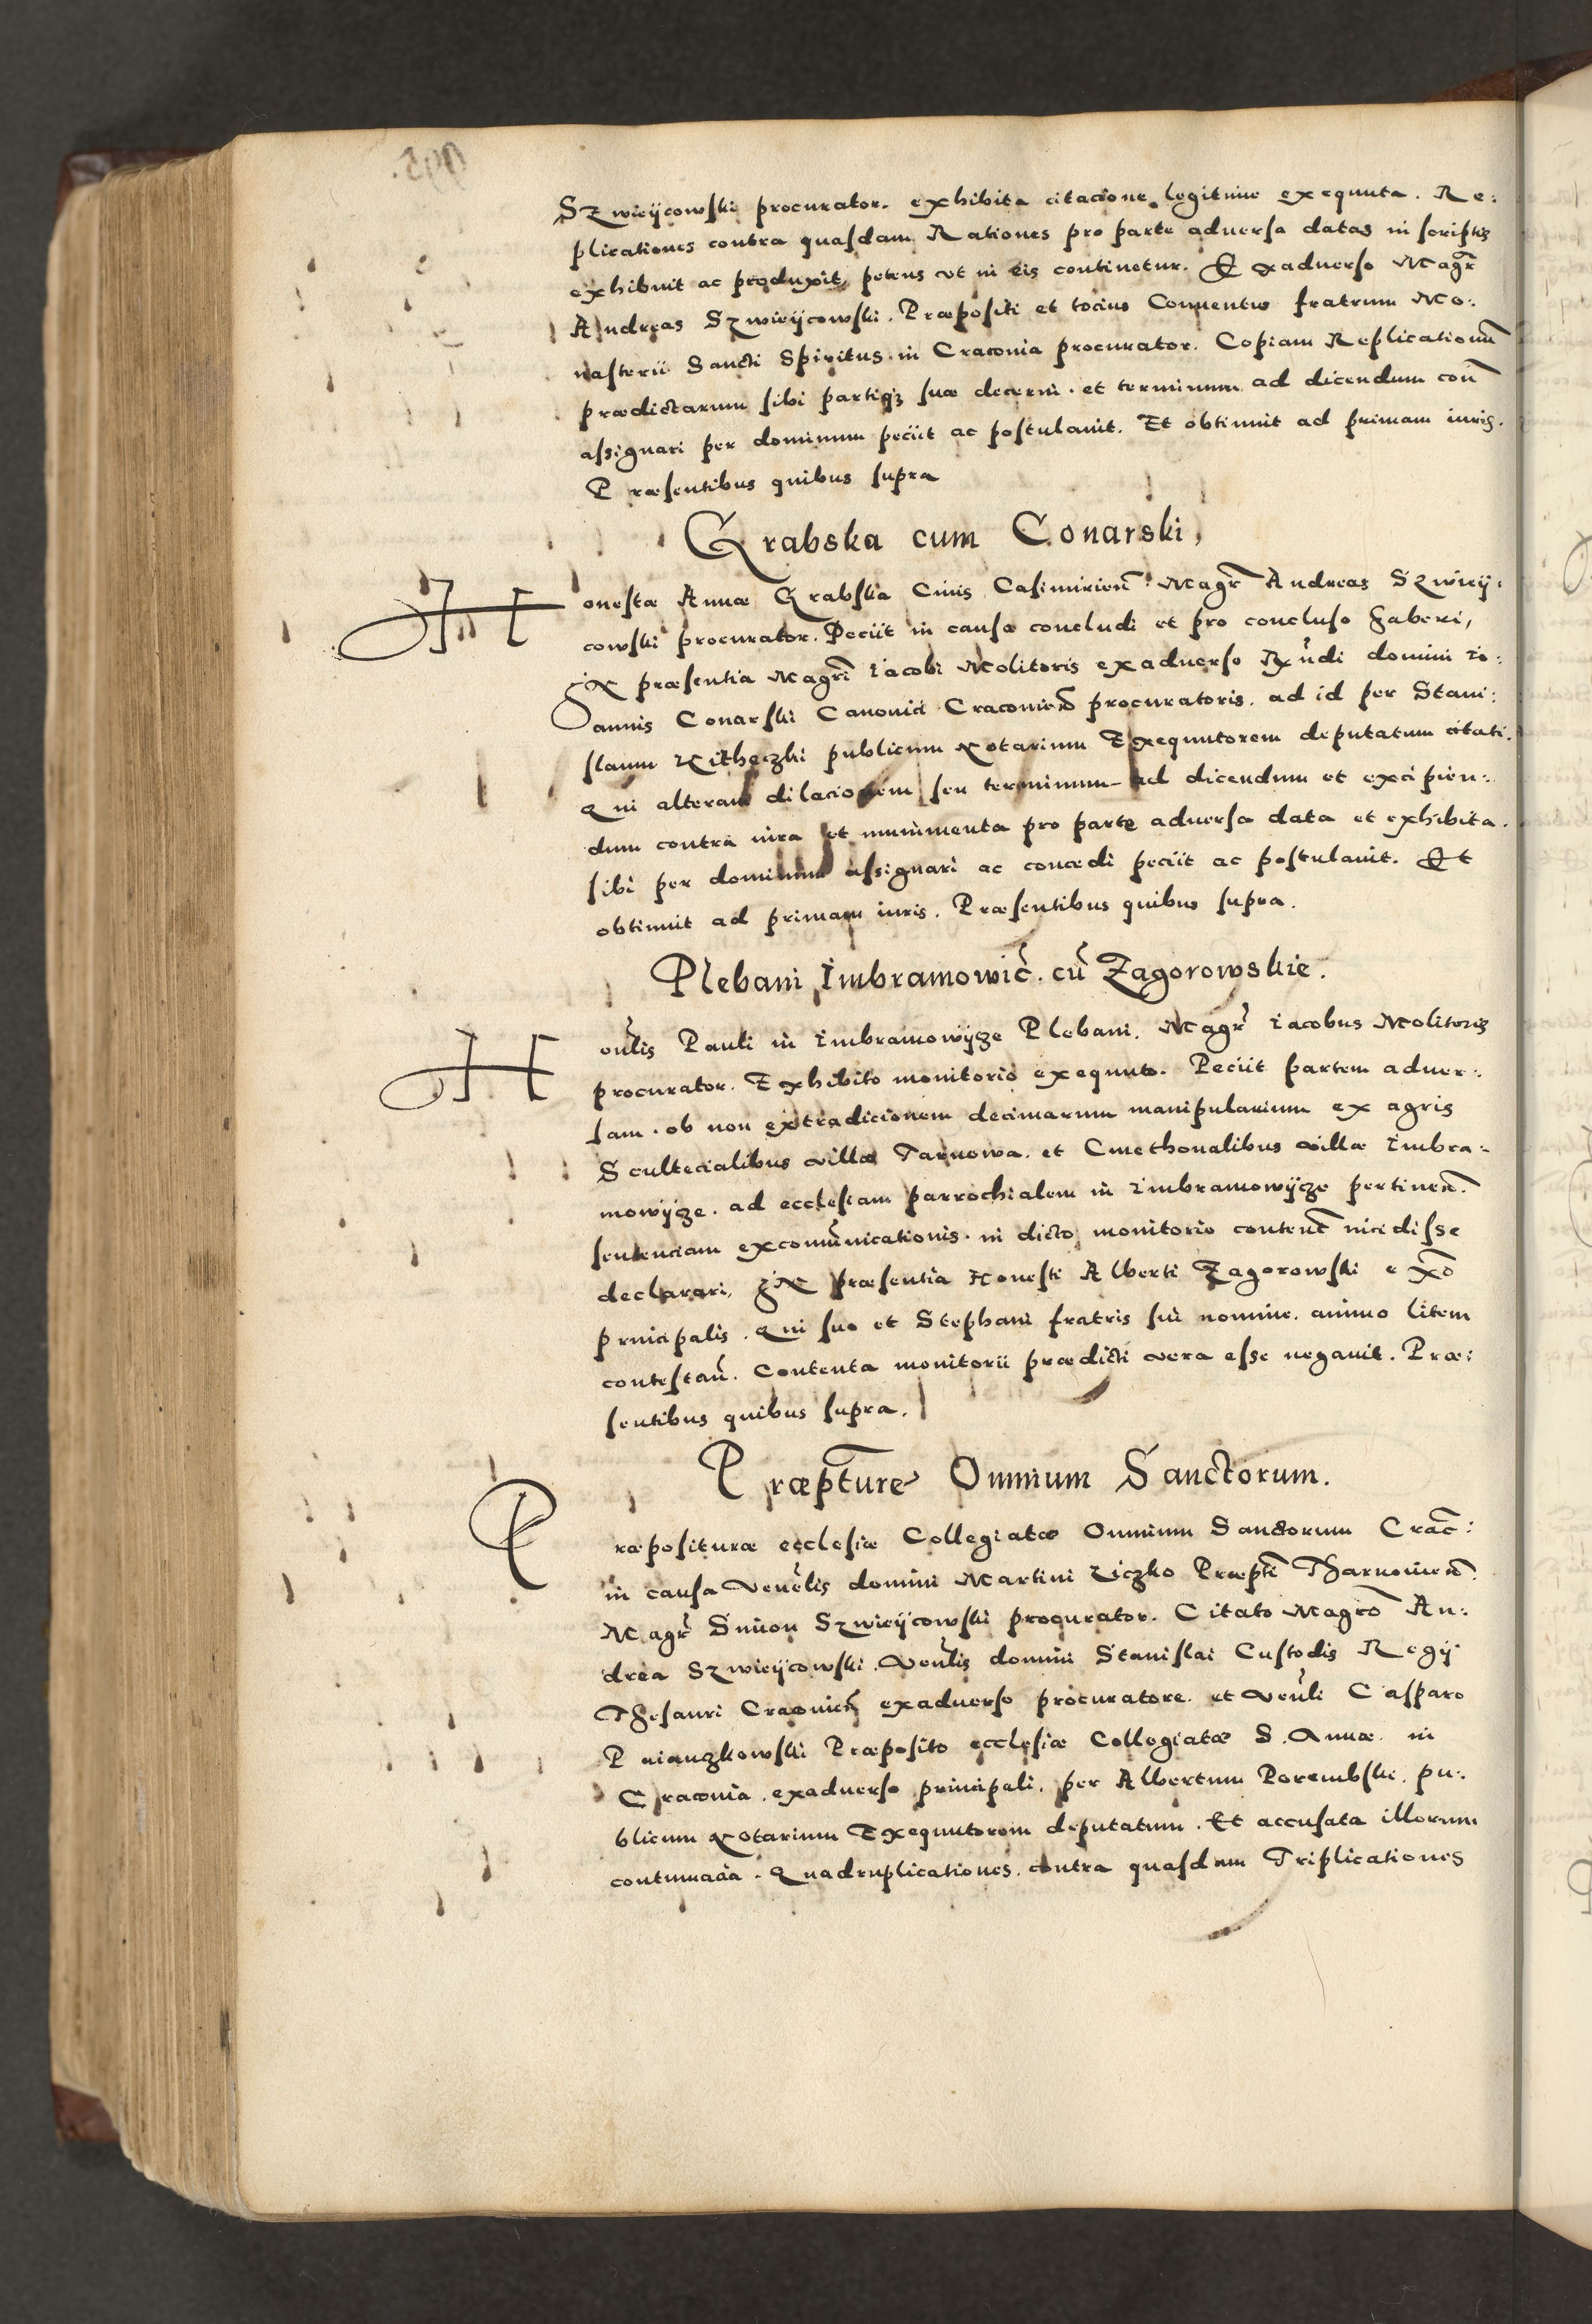 Szwieÿcowski procurator. exhibita citacione legitime exequuta. Re:
plicationes contra quasdam Rationes pro parte aduersa datas in scriptis
exhibuit ac produxit, petens vt in eis continetur. Et exaduerso Magr̃
Andreas Szwieÿcowski. Præpositi et tocius Conuentus fratrum Mo:
nasterii Sancti Spiritus in Craconia procurator. Copiam Replicationũ
prædictarum sibi partiqȝ suæ decerni. et terminum ad dicendum con̄
assignari per dominum peciit ac postulauit. Et obtinuit ad primam iuris.
Præsentibus quibus supra
Grabska cum Conarski,
Honestæ Annæ Grabska Ciuis Casimirien̄. Magr̃ Andreas Szwieÿ:
cowski procurator. Peciit in causa concludi et pro concluso haberi,
In præsentia Magrĩ Iacobi Molitoris exaduerso Rṽndi domini Io:
annis Conarski Canonici Cracouien̄ procuratoris. ad id per Stani:
slaum Kitheczki publicum Notarium Exequutorem deputatum citati.
Qui alteram dilacionem seu terminum ad dicendum et excipien:
dum contra iura et munimenta pro parte aduersa data et exhibita.
sibi per dominum assignari ac concedi peciit ac postulauit. Et
obtinuit ad primam iuris. Præsentibus quibus supra.
Plebani Imbramowic̃. cũ Zagorowskie.
Honlis Pauli in Imbramowÿcze Plebani. Magr̃ Iacobus Molitoris
procurator. Exhibito monitorio exequuto. Peciit partem aduer:
sam. ob non extradicionem decimarum manipularium ex agris
Scultecialibus villæ Tarnowa. et Cmethonalibus villæ Imbra:
mowÿcze. ad ecclesiam parrochialem in Imbramowÿcze pertinen̄.
sentenciam excomũnicationis. in dicto monitorio content̄ incidisse
declarari, In præsentia Honesti Alberti Zagorowski exo̅
principalis. Qui suo et Stephani fratris sui nomine. animo litem
contestan̄. Contenta monitorii prædicti vera esse negauit. Præ:
sentibus quibus supra.
Præpt̄uræ Omnium Sanctorum.
Præposituræ ecclesiæ Collegiatæ Omnium Sanctorum Crac̄:
in causa Venẽlis domini Martini Liczko Præptĩ Tharnouien̄.
Magr̃ Simon Szwieÿcowski procurator. Citato Magrõ An:
drea Szwieÿcowski. Venlis domini Stanislai Custodis Regÿ
Thesauri Cracouien̄ exaduerso procuratore. et Venli Casparo
Pniauzkowski Præposito ecclesiæ Collegiatæ S. Annæ in
Craconia. exaduerso principali. per Albertum Porembski. pu:
blicum Notarium Exequutorem deputatum. Et accusata illorum
contumacia. Quadruplicationes. contra quasdam Triplicationes